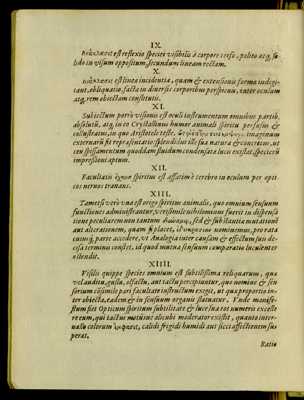 IX.
est reflexio speciei visibilis à corpore terso, polito atq; so-
lido in visum oppositum, secundum lineam rectam.
X.
est linea incidentiæ, quam & extensionis forma indigi-
tant, obliquatio facta in diversis corporibus perspicuis, inter oculum
atq; rem obiectam constitutis.
XI.
Subiectum porrò visionis est oculi instrumentum omnibus partib.
absolutū, atq; in eo Crystallinus humor animali spiritu perfusus &
collustratus, in quo Aristotele teste, imaginum
externarū fit repræsentatio splendidus ille sua natura & concretus, ut
seu spissamentum quoddam fluidum condensatæ lucis existat, specierū
impressioni aptum.
XII.
Facultatis spiritus est affatim è cerebro in oculum per opti-
cos nervos transans.
XIII.
Tametsi verò una est origo spiritus animalis, quo omnium sensuum
functiones administrantur, verisimile nihilominus fuerit in dispensa
tione peculiarem non tantum sed & subsistere mutationē
aut alterationem, quam si placet, nominemus, pro rata
cuiusq; parte accedere, ut Analogia inter causam & effectum sua de-
cisa terminis constet, id quod mutua sensuum comparatio luculenter
ostendit.
XIIII.
Visilis quippe species omnium est subtilissima reliquarum, qua
vel auditu, gustu, olfactu, aut tactu percipiuntur, quo nomine & sen-
sorium cōsimile pari facultate instructum exegit, ut qua proportio in-
ter obiecta, eadem & in sensuum organis statuatur. Unde manife-
stum fiet Opticum spiritum subtilitate & luce sua tot numeris excelle
re eum, qui tactus motusue alicubi moderator existit, quanto inter-
uallo colorum calidi frigidi humidi aut sicci affectionem su-
perat.
Ratio